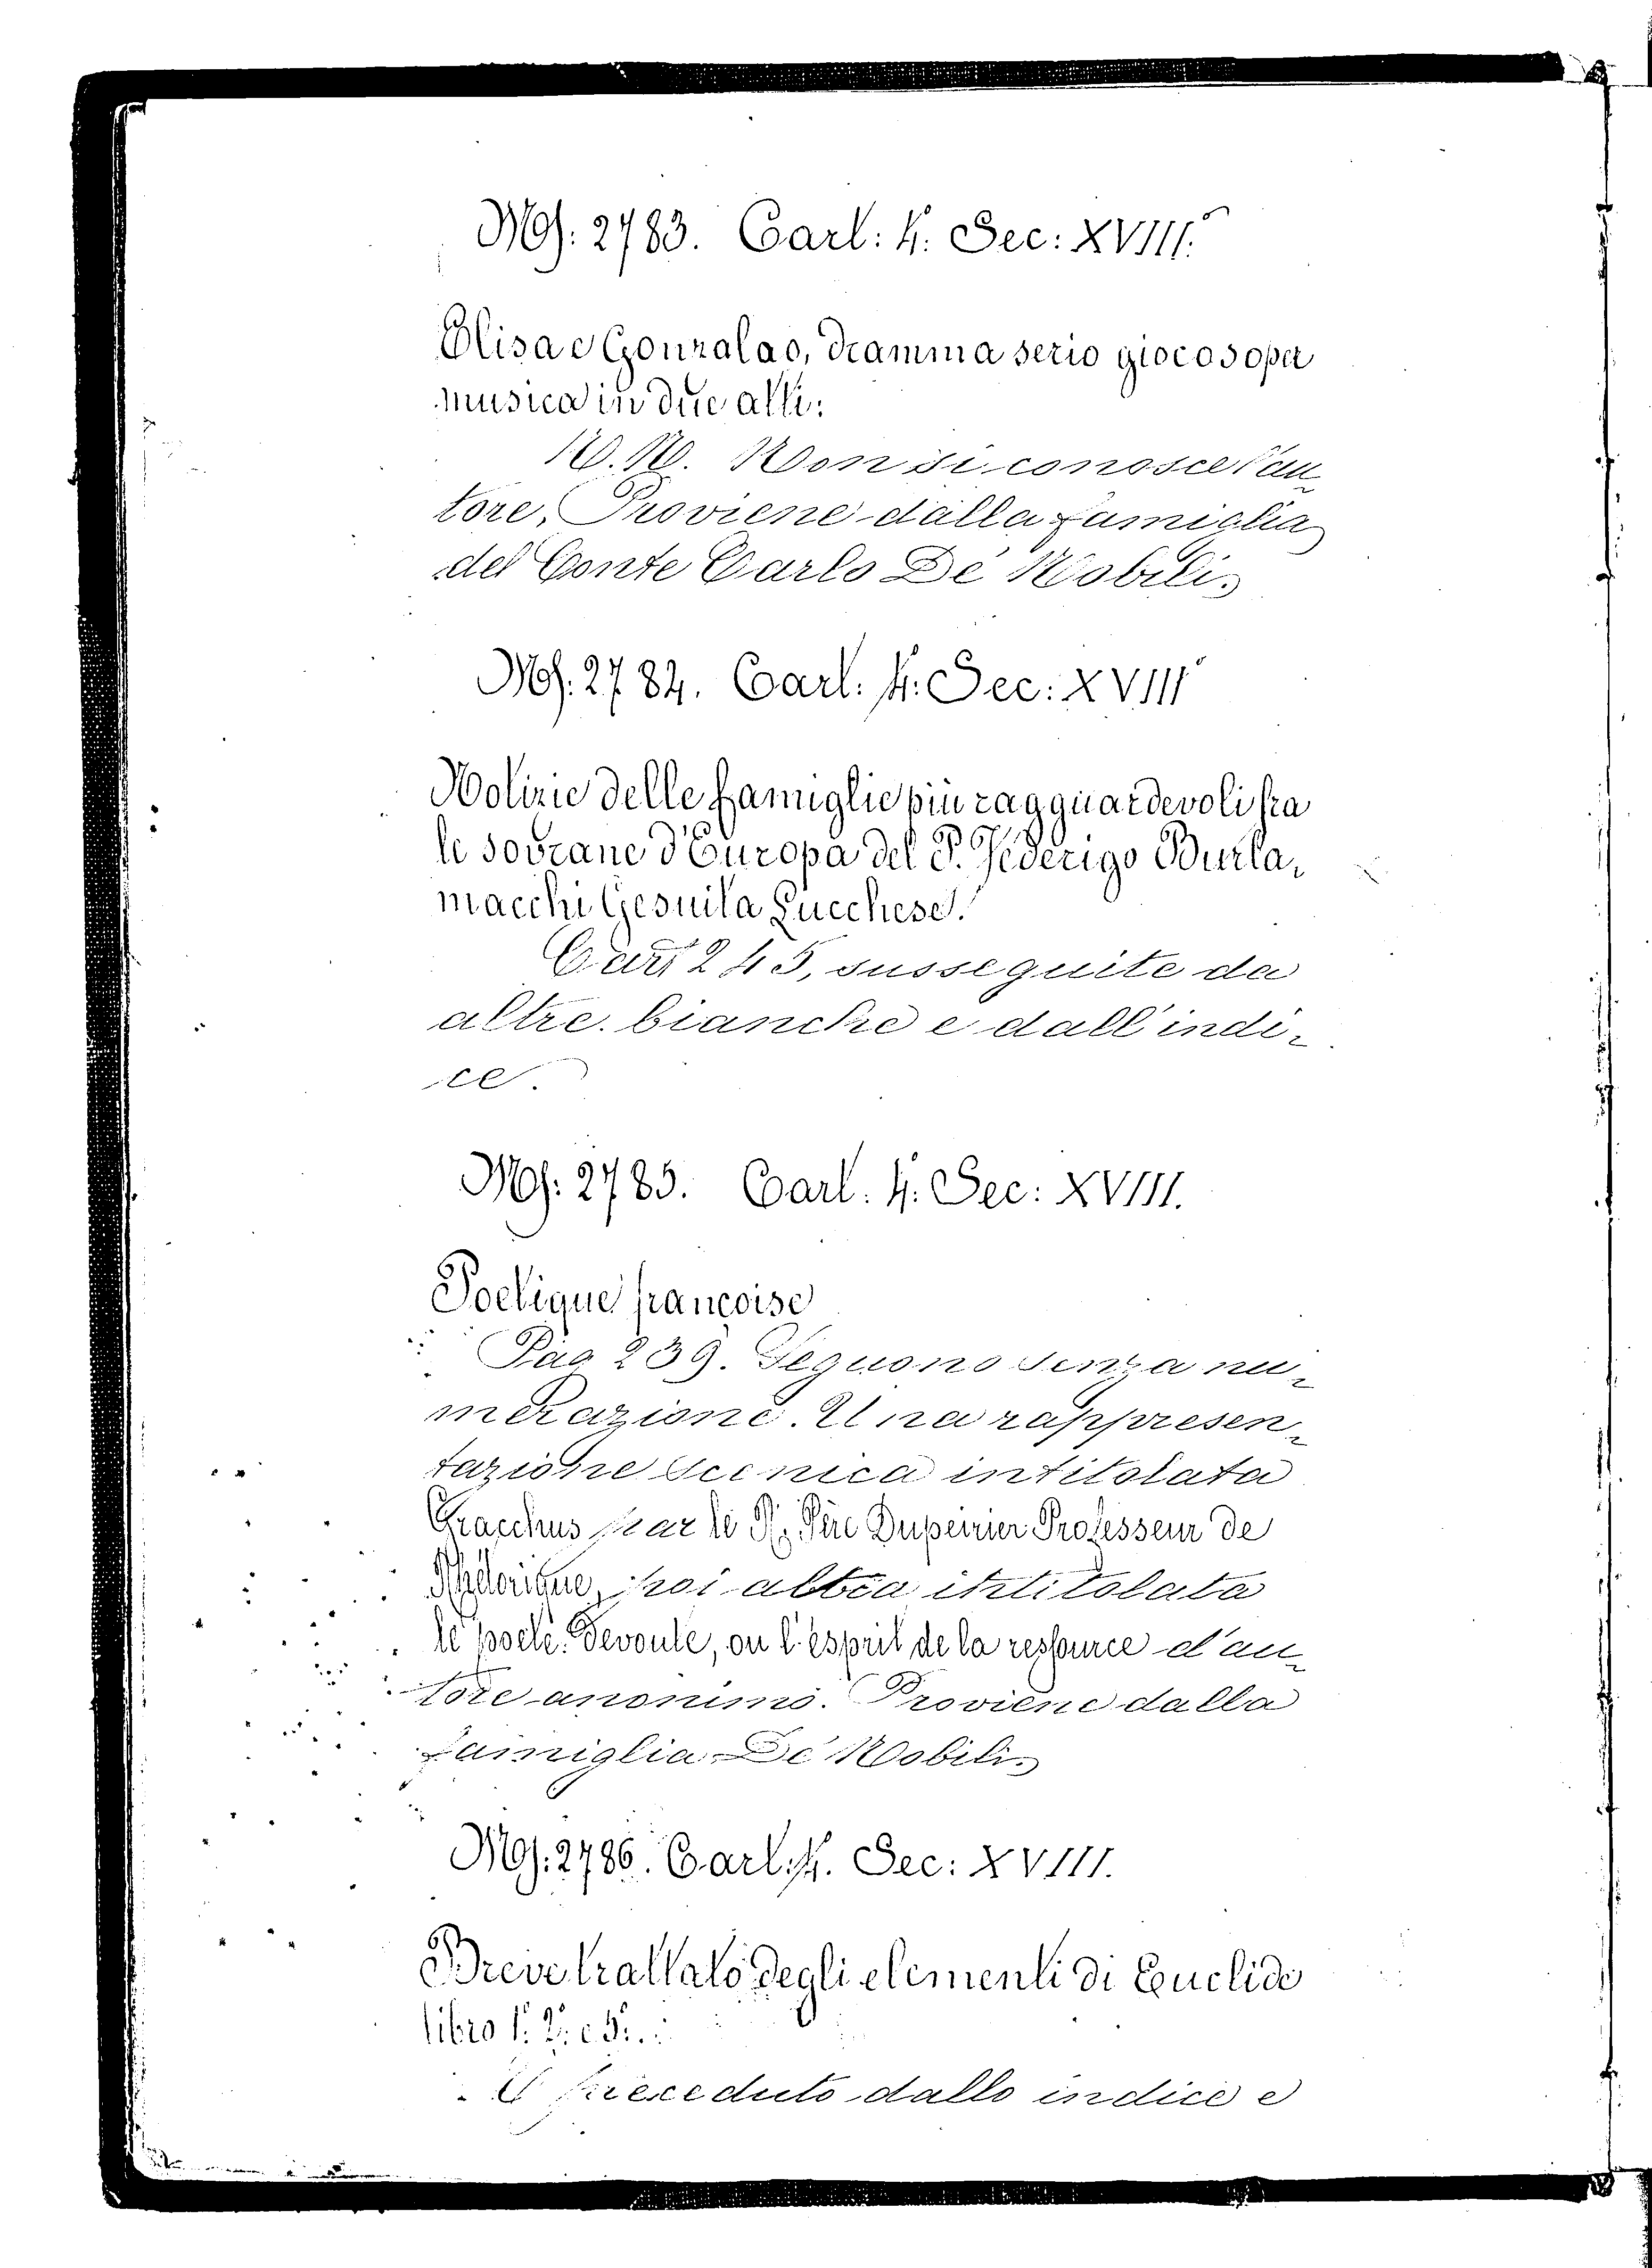 Ms. 2783. Cart: 4: Sec: XVIII.°
Elisa e Gonzalao, dramma serio giocoso per
musica in due atti.
N. N. Non si conosce l'au-
tore, Proviene dalla famiglia
del Conte Carlo De' Nobili.
Ms. 2784. Cart: 4: Sec: XVIII°
Notizie delle famiglie più ragguardevoli fra
le sovrane d'Europa del P. Federigo Burla-
macchi Gesuita Lucchese.
Cart 245, susseguite da
altre bianche e dall'indi-
ce.
Ms. 2785. Cart: 4: Sec: XVIII.
Poetique francoise
Pag 239. Seguono senza nu-
merazione. Una rappresen-
tazione scenica intitolata
Gracchus par le R. Père Duperrier Professeur de
Rhétorique, poi altra intitolata
le poete devouté, ou l'esprit de la ressource d'au-
tore anonimo. Proviene dalla
famiglia De' Nobili.
Ms. 2786. Cart: 4. Sec: XVIII.
Breve trattato degli elementi di Euclide
libro 1: 2: e 5:.
È preceduto dallo indice e